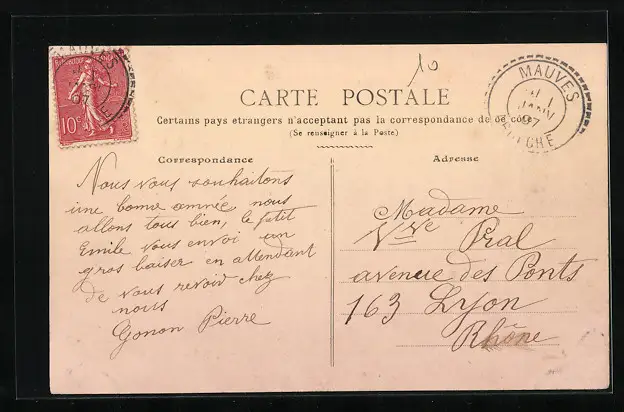 10
CARTE POSTALE
MAUVES
ARDÈCHE
10c
Certains pays etrangers n'acceptant pas la correspondance de ce coté
(Se renseigner à la Poste)
Correspondance
Adresse
Nous vous souhaitons
une bonne année, nous
allons tous bien, le petit
Emile vous envoi un
gros baiser en attendant
de vous revoir chez
nous
Gonon Pierre
Madame
Vve Pral
avenue des Ponts
163 Lyon
Rhône